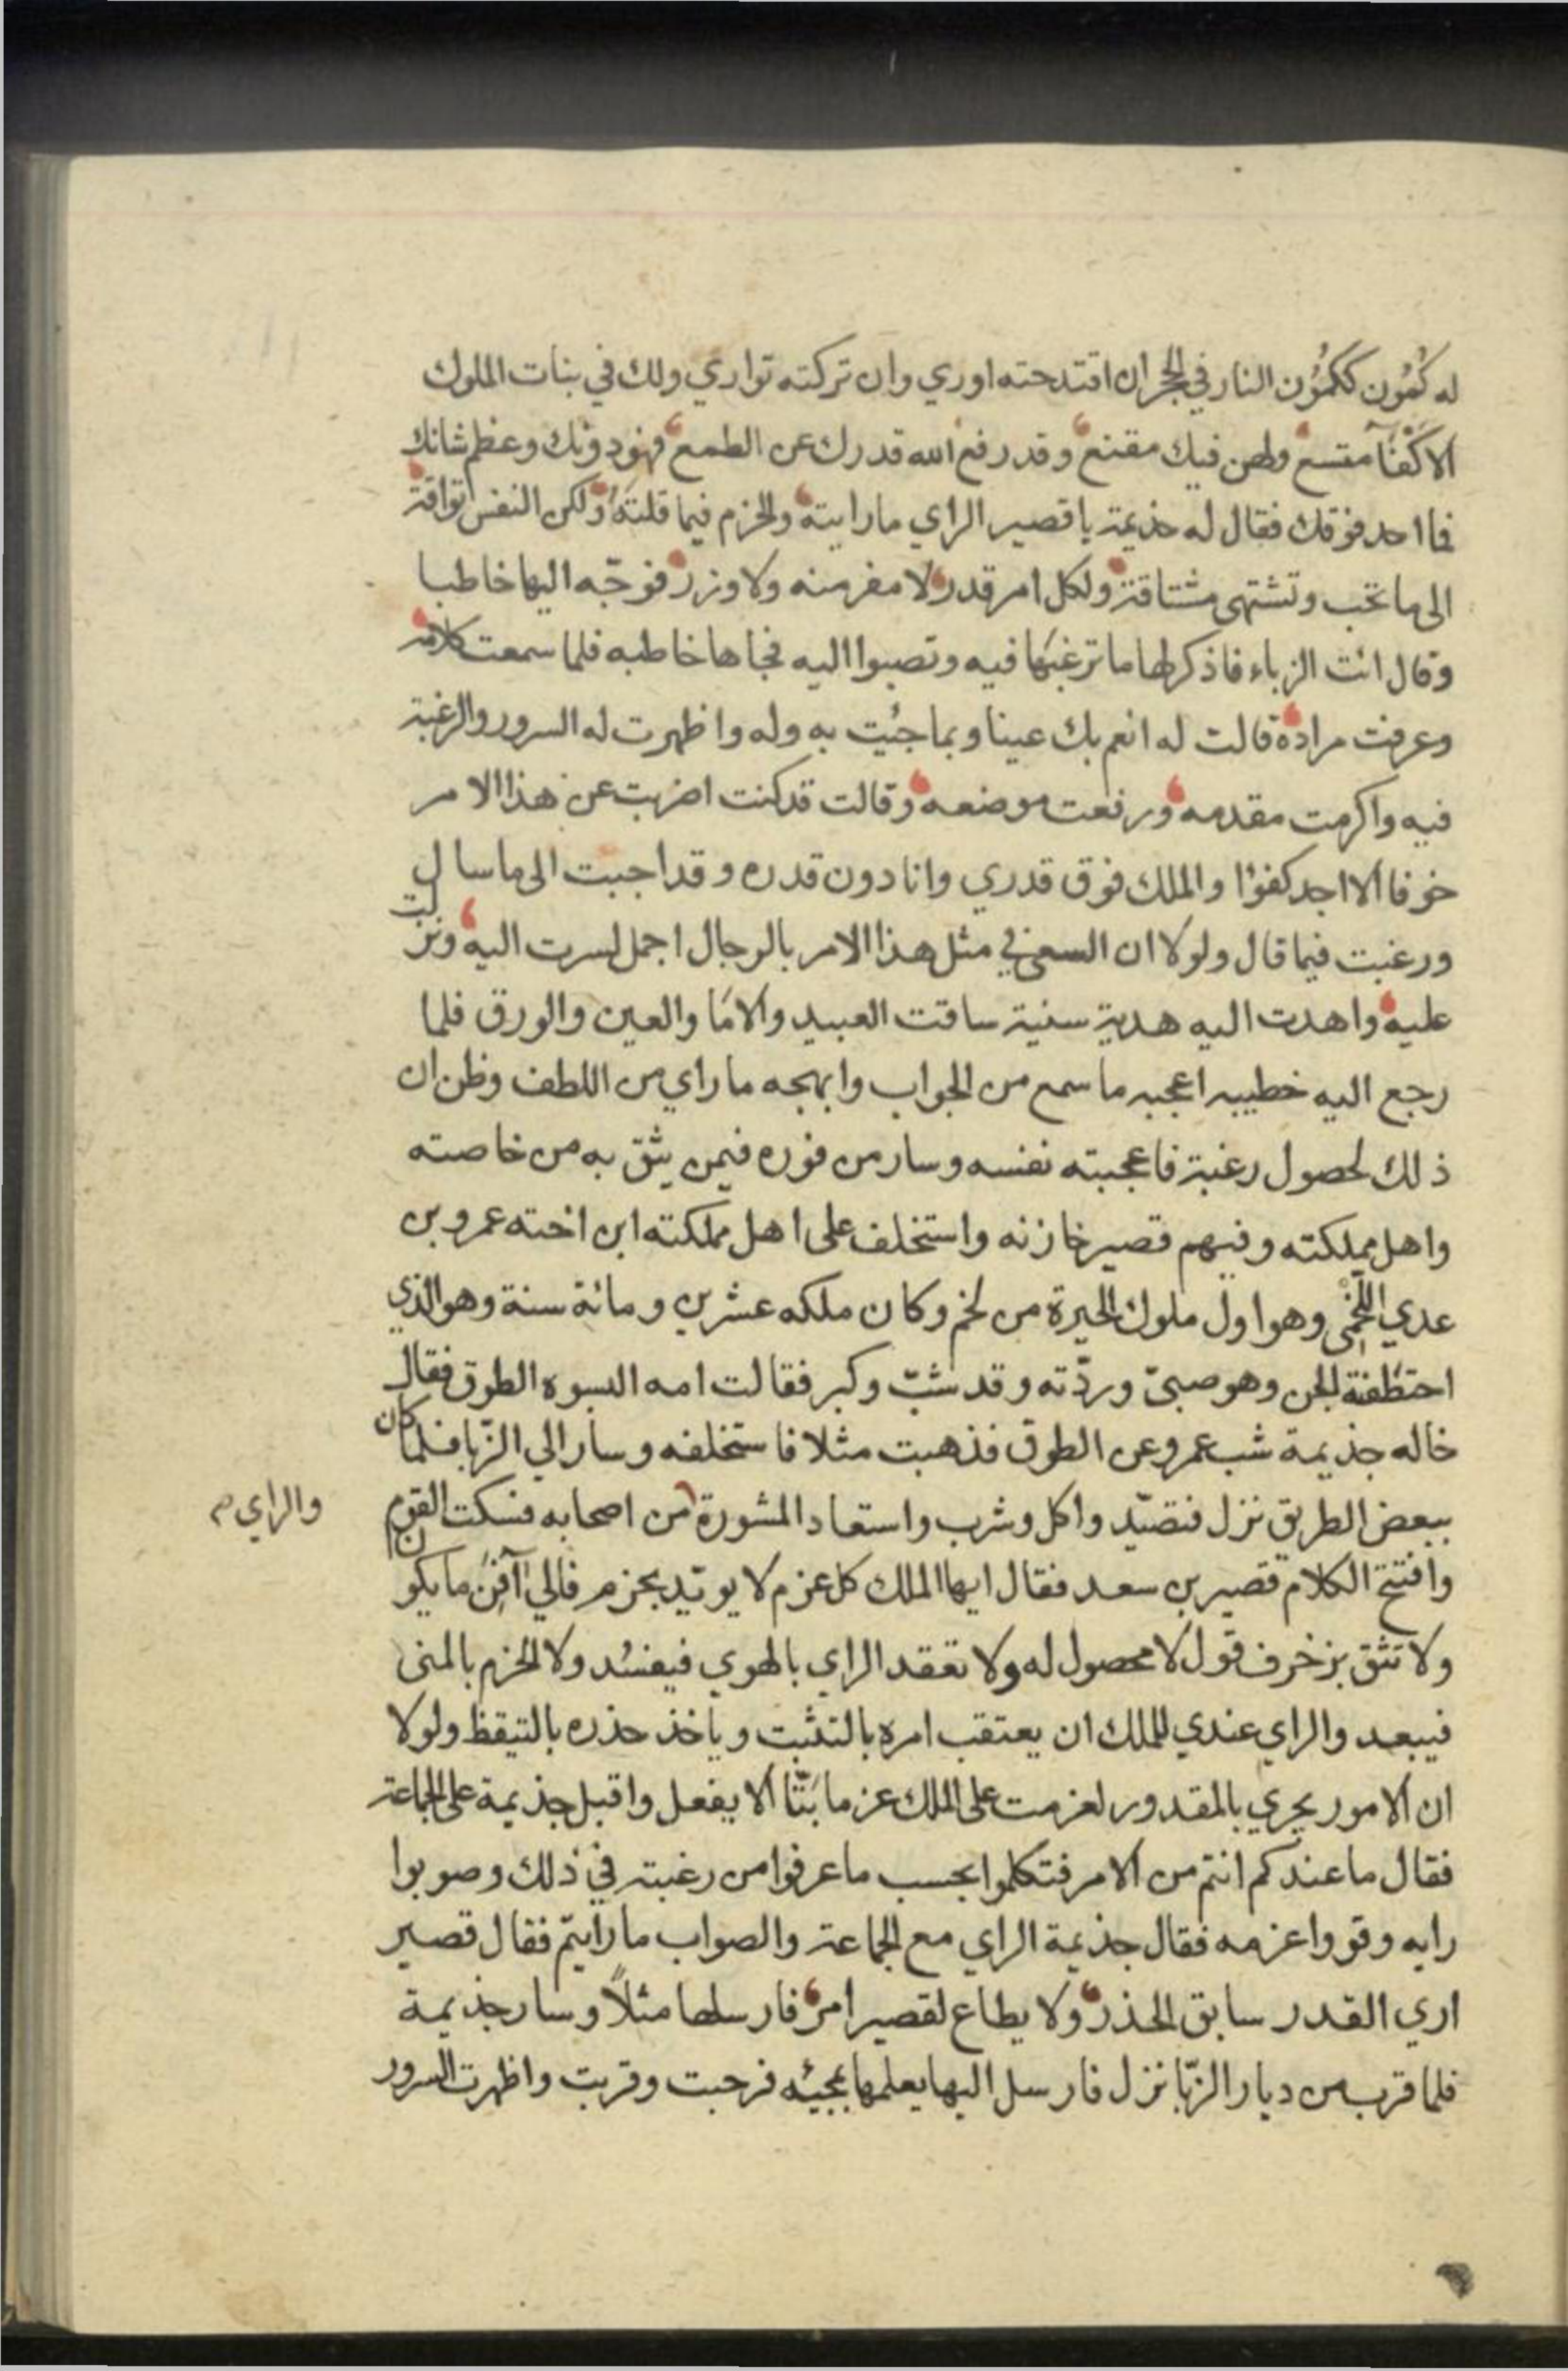 له كُمُون ككمُون النار في الحجر ان اقتدحته اوري وان تركته تواري ولك في بنات الملوك
الاكْفآ متسع ولهن فيك مقنع وقد رفع الله قدرك عن الطمع فهو دونك وعظم شانك
فما احد فوقك فقال له جذيمة يا قصير الراي ما رايته والحزم فيما قلته ولكن النفس تواقة
الى ما تحب وتشتهى مشتاقة ولكل امر قدر لا مفر منه ولا وزر فوجّه اليها خاطبا
وقال ائت الزباء فاذكر لها ما ترغبَها فيه وتصبوا اليه فجاها خاطبه فلما سمعت كلامه
وعرفت مراده قالت له انعم بك عينا وبما جئت به وله واظهرت له السرور والرغبة
فيه واكرمت مقدمه ورفعت موضعه وقالت قد كنت اضربت عن هذا الامر
خوفا الا اجد كفوًا والملك فوق قدري وانا دون قدره وقد اجبت الى ما سال
ورغبت فيما قال ولولا ان السعي في مثل هذا الامر بالرجال اجمل لسرت اليه ونزلت
عليه واهدت اليه هدية سنية ساقت العبيد والامَا والعين والورق فلما
رجع اليه خطيبه اعجبه ما سمع من الجواب وابهجه ما راي من اللطف وظن ان
ذلك لحصول رغبة فاعجبته نفسه وسار من فوره فيمن يثق به من خاصته
واهل مملكته وفيهم قصير خازنه واستخلف على اهل مملكته ابن اخته عمرو بن
عدي اللّخْمِي وهو اول ملوك الحيرة من لخم وكان ملكه عشرين ومائة سنة وهو الذي
احتطفته الجن وهو صبيّ وردّته وقد شبّ وكبر فقالت امه البسوه الطوق فقال
خاله جذيمة شب عمرو عن الطوق فذهبت مثلا فاستخلفه وسار الي الزّبا فلما كان
ببعض الطريق نزل فتصيّد واكل وشرب واستعاد المشورة من اصحابه فسكت القوم
والراي م
وافتتح الكلام قصير بن سعد فقال ايها الملك كل عزم لا يويّد بحزم فالي آفِنٍ ما يكون
ولا تثق بزخرف قول لا محصول له ولا تعقد الراي بالهوي فيفسُد ولا الحزم بالمنى
فيبعد والراي عندي للملك ان يعتقب امره بالتثبت وياخذ حذره بالتيقظ ولولا
ان الامور يجري بالمقدور لعزمت على الملك عزما بَتًّا الا يفعل واقبل جذيمة على الجماعة
فقال ما عندكم انتم من الامر فتكلموا بحسب ما عرفوا من رغبته في ذلك وصوبوا
رايه وقووا عزمه فقال جذيمة الراي مع الجماعة والصواب ما رايتم فقال قصير
اري القدر سابق الحذر ولا يطاع لقصير امر فارسلها مثلاً وسار جذيمة
فلما قرب من ديار الزّبا نزل فارسل اليها يعلمها بمجيئه فرحبت وقربت واظهرت السرور